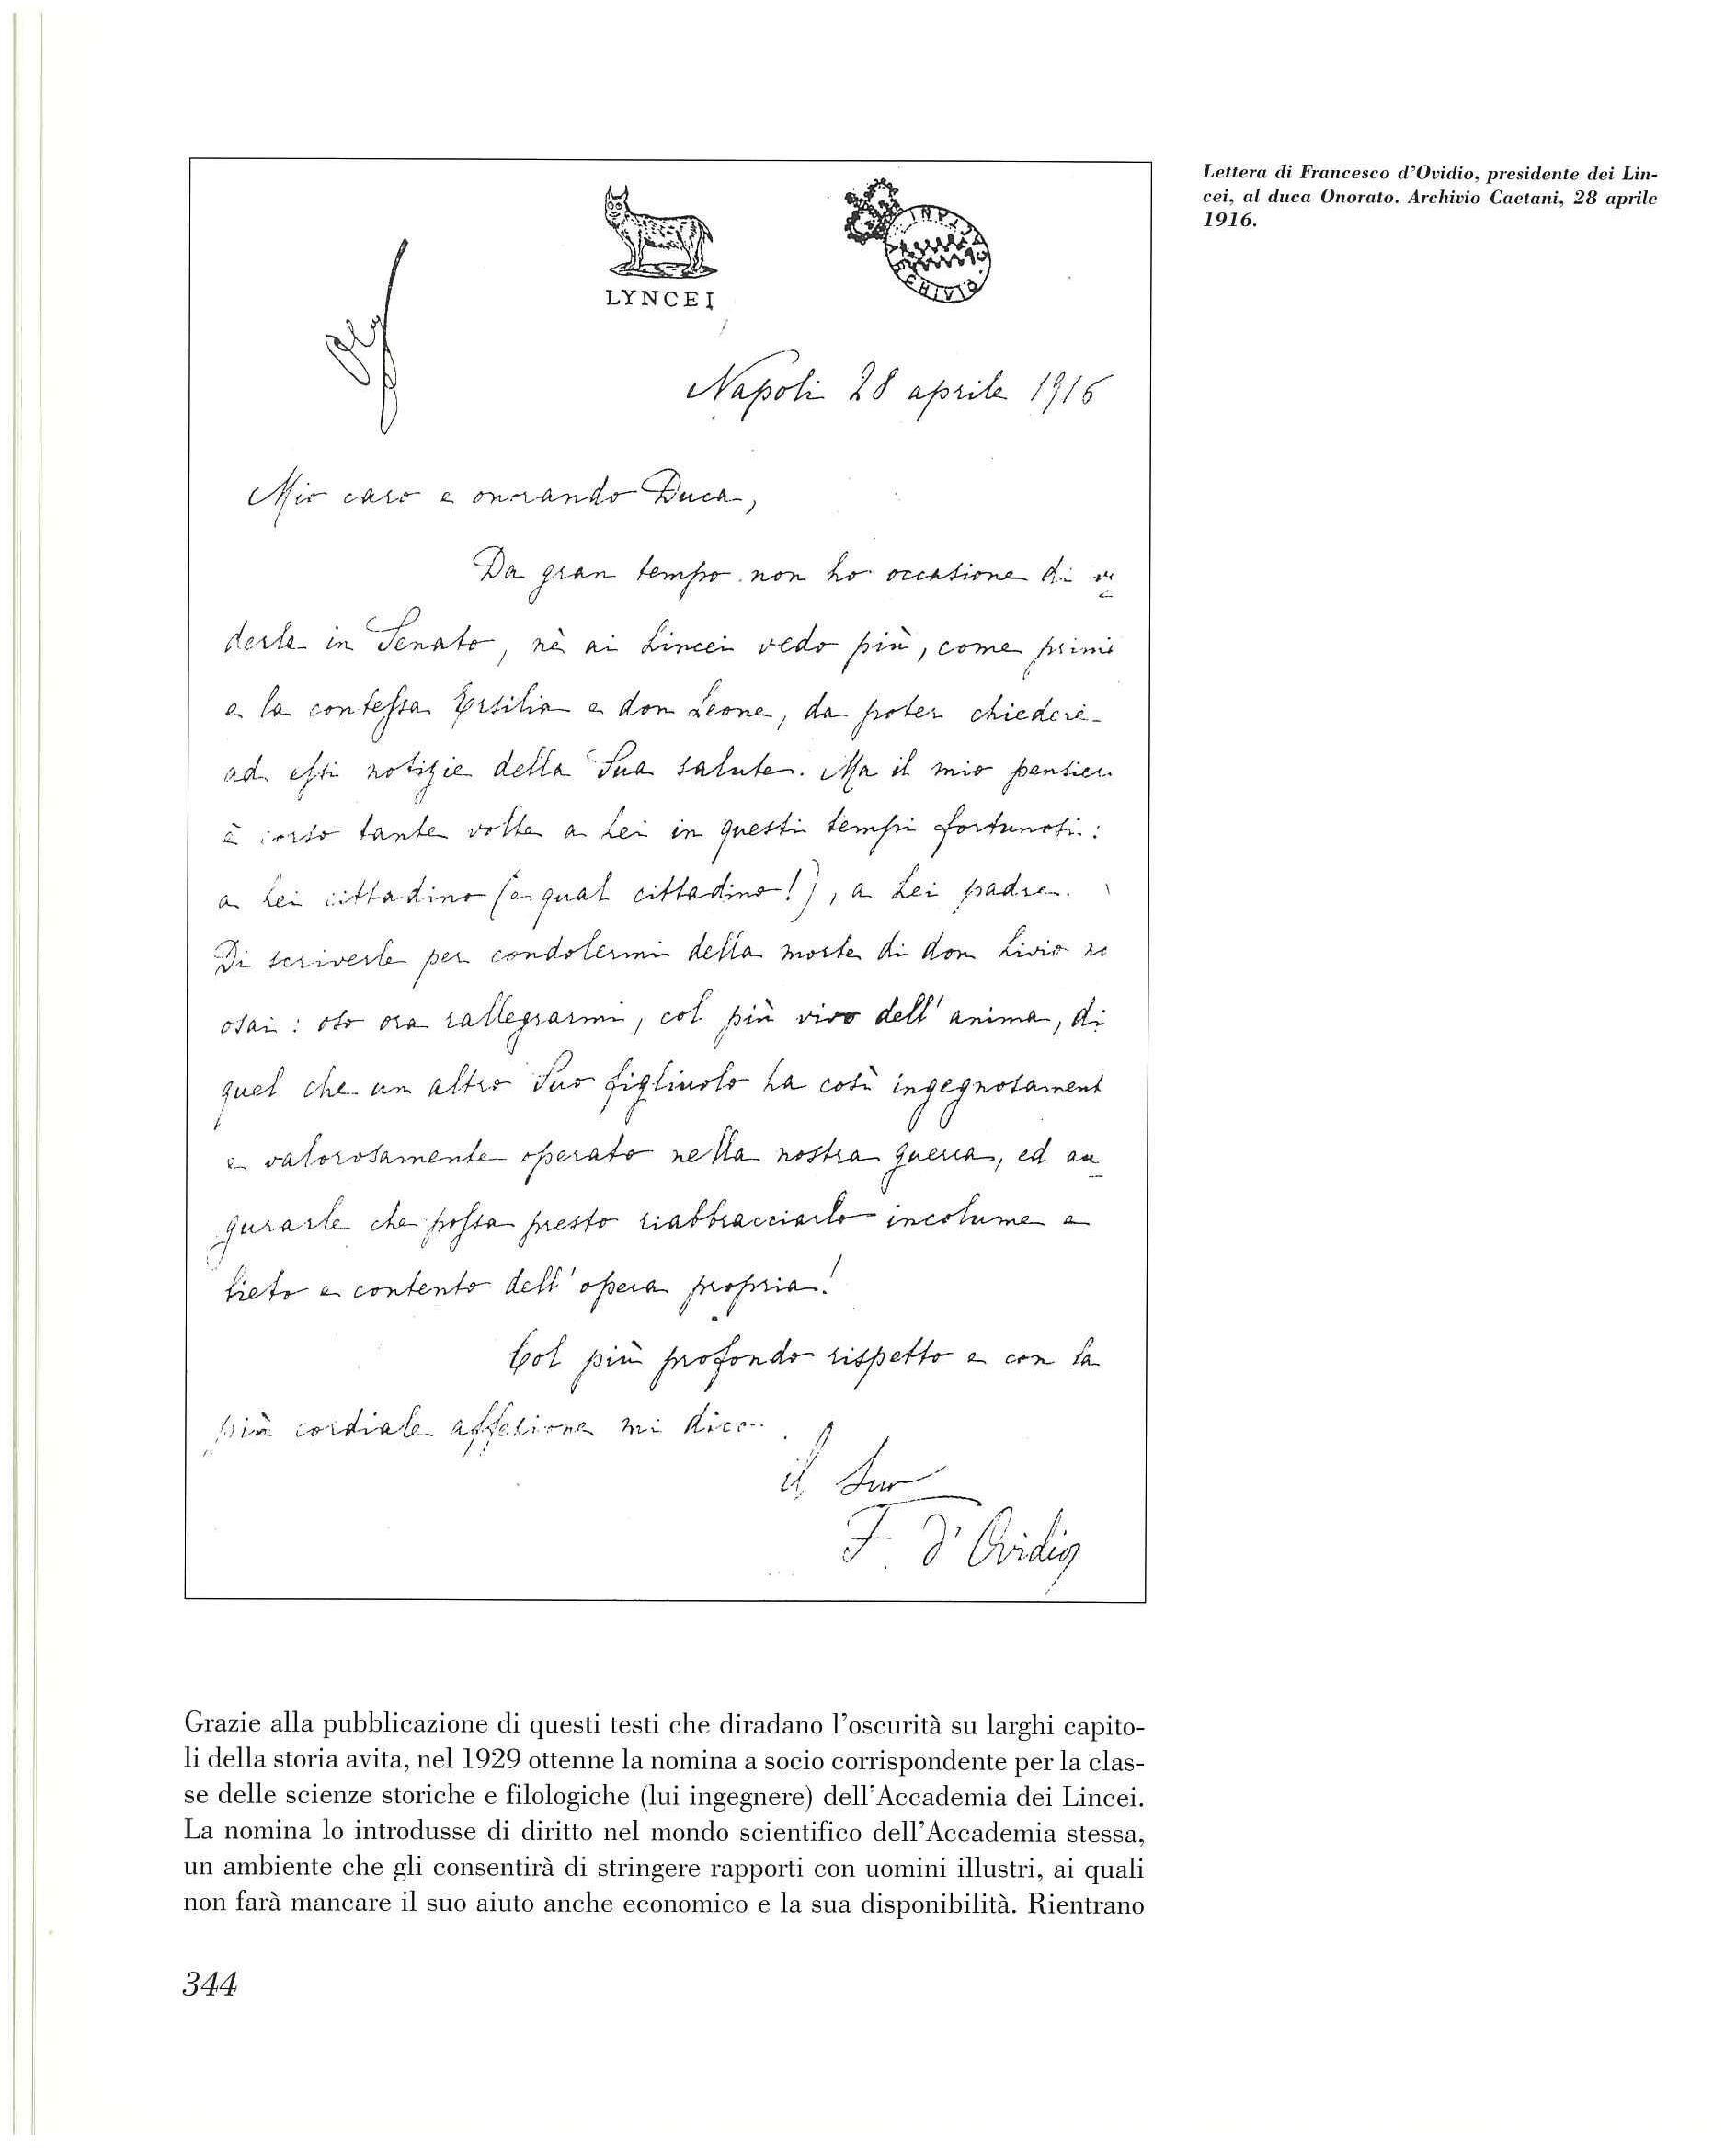 LYNCEI
ARCHIVIO CAETANI
Napoli 28 aprile 1916
Mio caro e onorando Duca,
Da gran tempo non ho occasione di ve
derla in Senato, nè ai Lincei vedo più, come prima
e la contessa Ersilia e don Leone, da poter chiedere
ad essi notizie della Sua salute. Ma il mio pensier
è corso tante volte a Lei in questi tempi fortunosi:
a Lei cittadino (e qual cittadino!), a Lei padre.
Di scriverle per condolermi della morte di don Livio no
osai: oso ora rallegrarmi, col più vivo dell'anima, di
quel che un altro Suo figliuolo ha così ingegnosament
e valorosamente operato nella nostra guerra, ed au
gurarle che possa presto riabbracciarlo incolume e
lieto e contento dell'opera propria!
Col più profondo rispetto e con la
più cordiale affezione mi dico
il Suo
F. d'Ovidio
Lettera di Francesco d'Ovidio, presidente dei Lin-
cei, al duca Onorato. Archivio Caetani, 28 aprile
1916.
Grazie alla pubblicazione di questi testi che diradano l'oscurità su larghi capito-
li della storia avita, nel 1929 ottenne la nomina a socio corrispondente per la clas-
se delle scienze storiche e filologiche (lui ingegnere) dell'Accademia dei Lincei.
La nomina lo introdusse di diritto nel mondo scientifico dell'Accademia stessa,
un ambiente che gli consentirà di stringere rapporti con uomini illustri, ai quali
non farà mancare il suo aiuto anche economico e la sua disponibilità. Rientrano
344